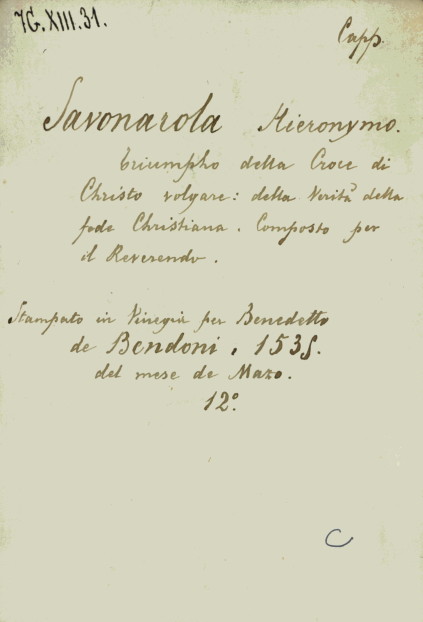 7G.XIII.31.
Capp.
Savonarola Hieronymo.
Triumpho della Croce di
Christo volgare: della Verità della
fede Christiana. Composto per
il Reverendo.
Stampato in Vinegia per Benedetto
de Bendoni, 1535.
del mese de Mazo.
12º.
C